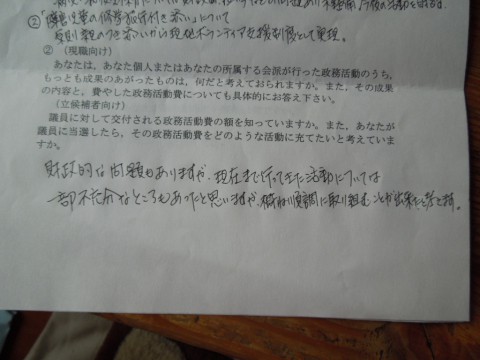 ② 障害児童の修学旅行付き添いについて
原則親のつき添いから現地ボランティアを援制度として実現。
② (現職向け)
あなたは、あなた個人またはあなたの所属する会派が行った政務活動のうち、
もっとも成果のあがったものは、何だと考えておられますか。また、その成果
の内容と、費やした政務活動費についても具体的にお答え下さい。
(立候補者向け)
議員に対して交付される政務活動費の額を知っていますか。また、あなたが
議員に当選したら、その政務活動費をどのような活動に充てたいと考えていま
すか。
財政的な問題もありますが、現在まで行ってきた活動については
一部不充分なところもあったと思いますが、概ね順調に取り組むことが出来たと考えます。